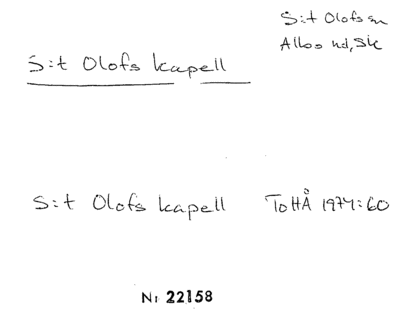 S:t Olofs sn
Albo hd, Sk
S:t Olofs kapell
S:t Olofs kapell ToHÅ 1974:60
Nr 22158